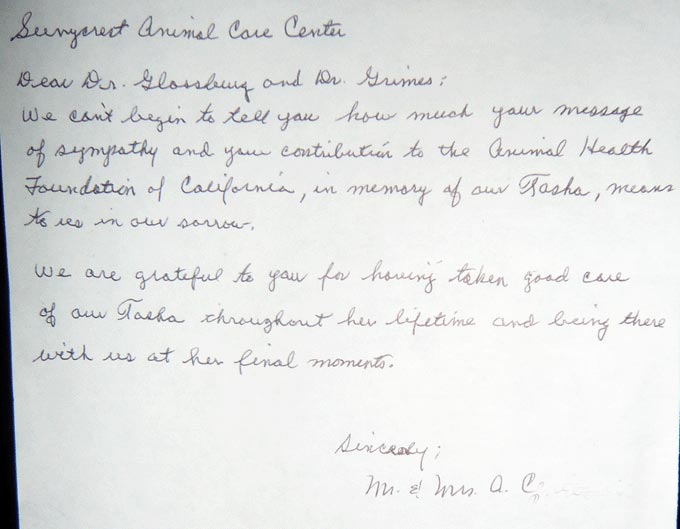 Sunnycrest Animal Care Center
Dear Dr. Glassburg and Dr. Grimes;
We can't begin to tell you how much your message
of sympathy and your contribution to the Animal Health
Foundation of California, in memory of our Tasha, means
to us in our sorrow.
We are grateful to you for having taken good care
of our Tasha throughout her lifetime and being there
with us at her final moments.
Sincerely;
Mr. & Mrs. A. C